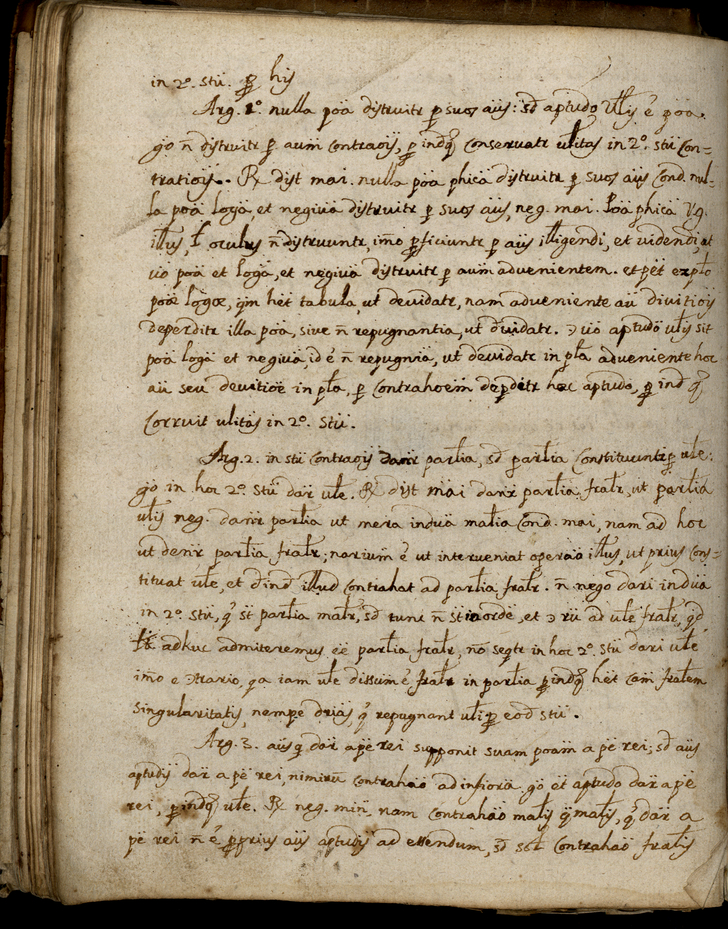 in 2º. stü. ꝑ his
Arg. 1º. nulla poä distruitr p suos aüs: sd aptudo Utlis ē poa.
go n̄ distruitr p aum̄ Contraöis, p indq̃ Conservatr ulitas in 2º. stü Con=
tratiöis.. R̃ dist mai. nulla poä phicä distruitr p suos aüs Cond. nul-
la poä logïä, et negivä distruitr p suos aüs, neg. mai. Poä phicä v.g.
illus, l̃ oculus n̄ distruuntr, imo ꝑficiuntr p aüs illigendi, et videndi, at
vö poä et logä, et negivä distruitr p aum̄ advenientem. et pët explo
poæ logoæ, qm̄ hët tabula, ut devidatr, nam adveniente aü divitiöis
deperditr illa poä, sive n̄ repugnantia, ut dividatr. vö aptudö utlis sit
poä logä et negivä, id ē n̄ repugnïä, ut devidatr in pla adveniente hoc
aü seu devitiöe in pla, p Contrahoem̄ depditr hoc aptudo, ꝑ ind q̃
Corruit ulitas in 2º. stü.
Arg. 2. in stü Contraöis danr partlia, sd partlia Constituuntr p utle:
go in hoc 2º. stü dar utle. R̃ dist mai danr partlia fratr, ut partlia
utlis neg. danr partlia ut mera indua matlia Cond. mai, nam ad hoc
ut denr partlia fratr; narium ē ut interveniat operaö illus, ut prius Cons=
tituat utle, et dind illud Contrahat ad partlia fratr. n̄ nego dari indua
in 2º. stü, q̃ st partlia matr, sd tunc n̄ st in orde, et rü ad utle fratr, qd
adhuc admiteremus eē partlia fratr, no seqtr in hoc 2º. stü dari utle
imo e Ↄtrario, qa iam utle dissum̄ ē fratr in partlia ꝑ indq̃ hët Com̄ fratem
singularitatis, nempe drias, q̃ repugnant utli ꝑ eod stü.
Arg. 3. aüs q̃ dar a pe rei supponit suam poam a pe rei; sd aüs
aptudis dar a pe rei, nimirū Contrahaö ad infiora. go et aptudo dar a pe
rei, ꝑ indq̃ utle. R̃ neg. min, nam Contrahaö matlis q̃ matlis, q̃ dar a
pe rei n̄ ē ꝑprius aüs aptudis ad essendum, sd sol Contrahaö fratlis